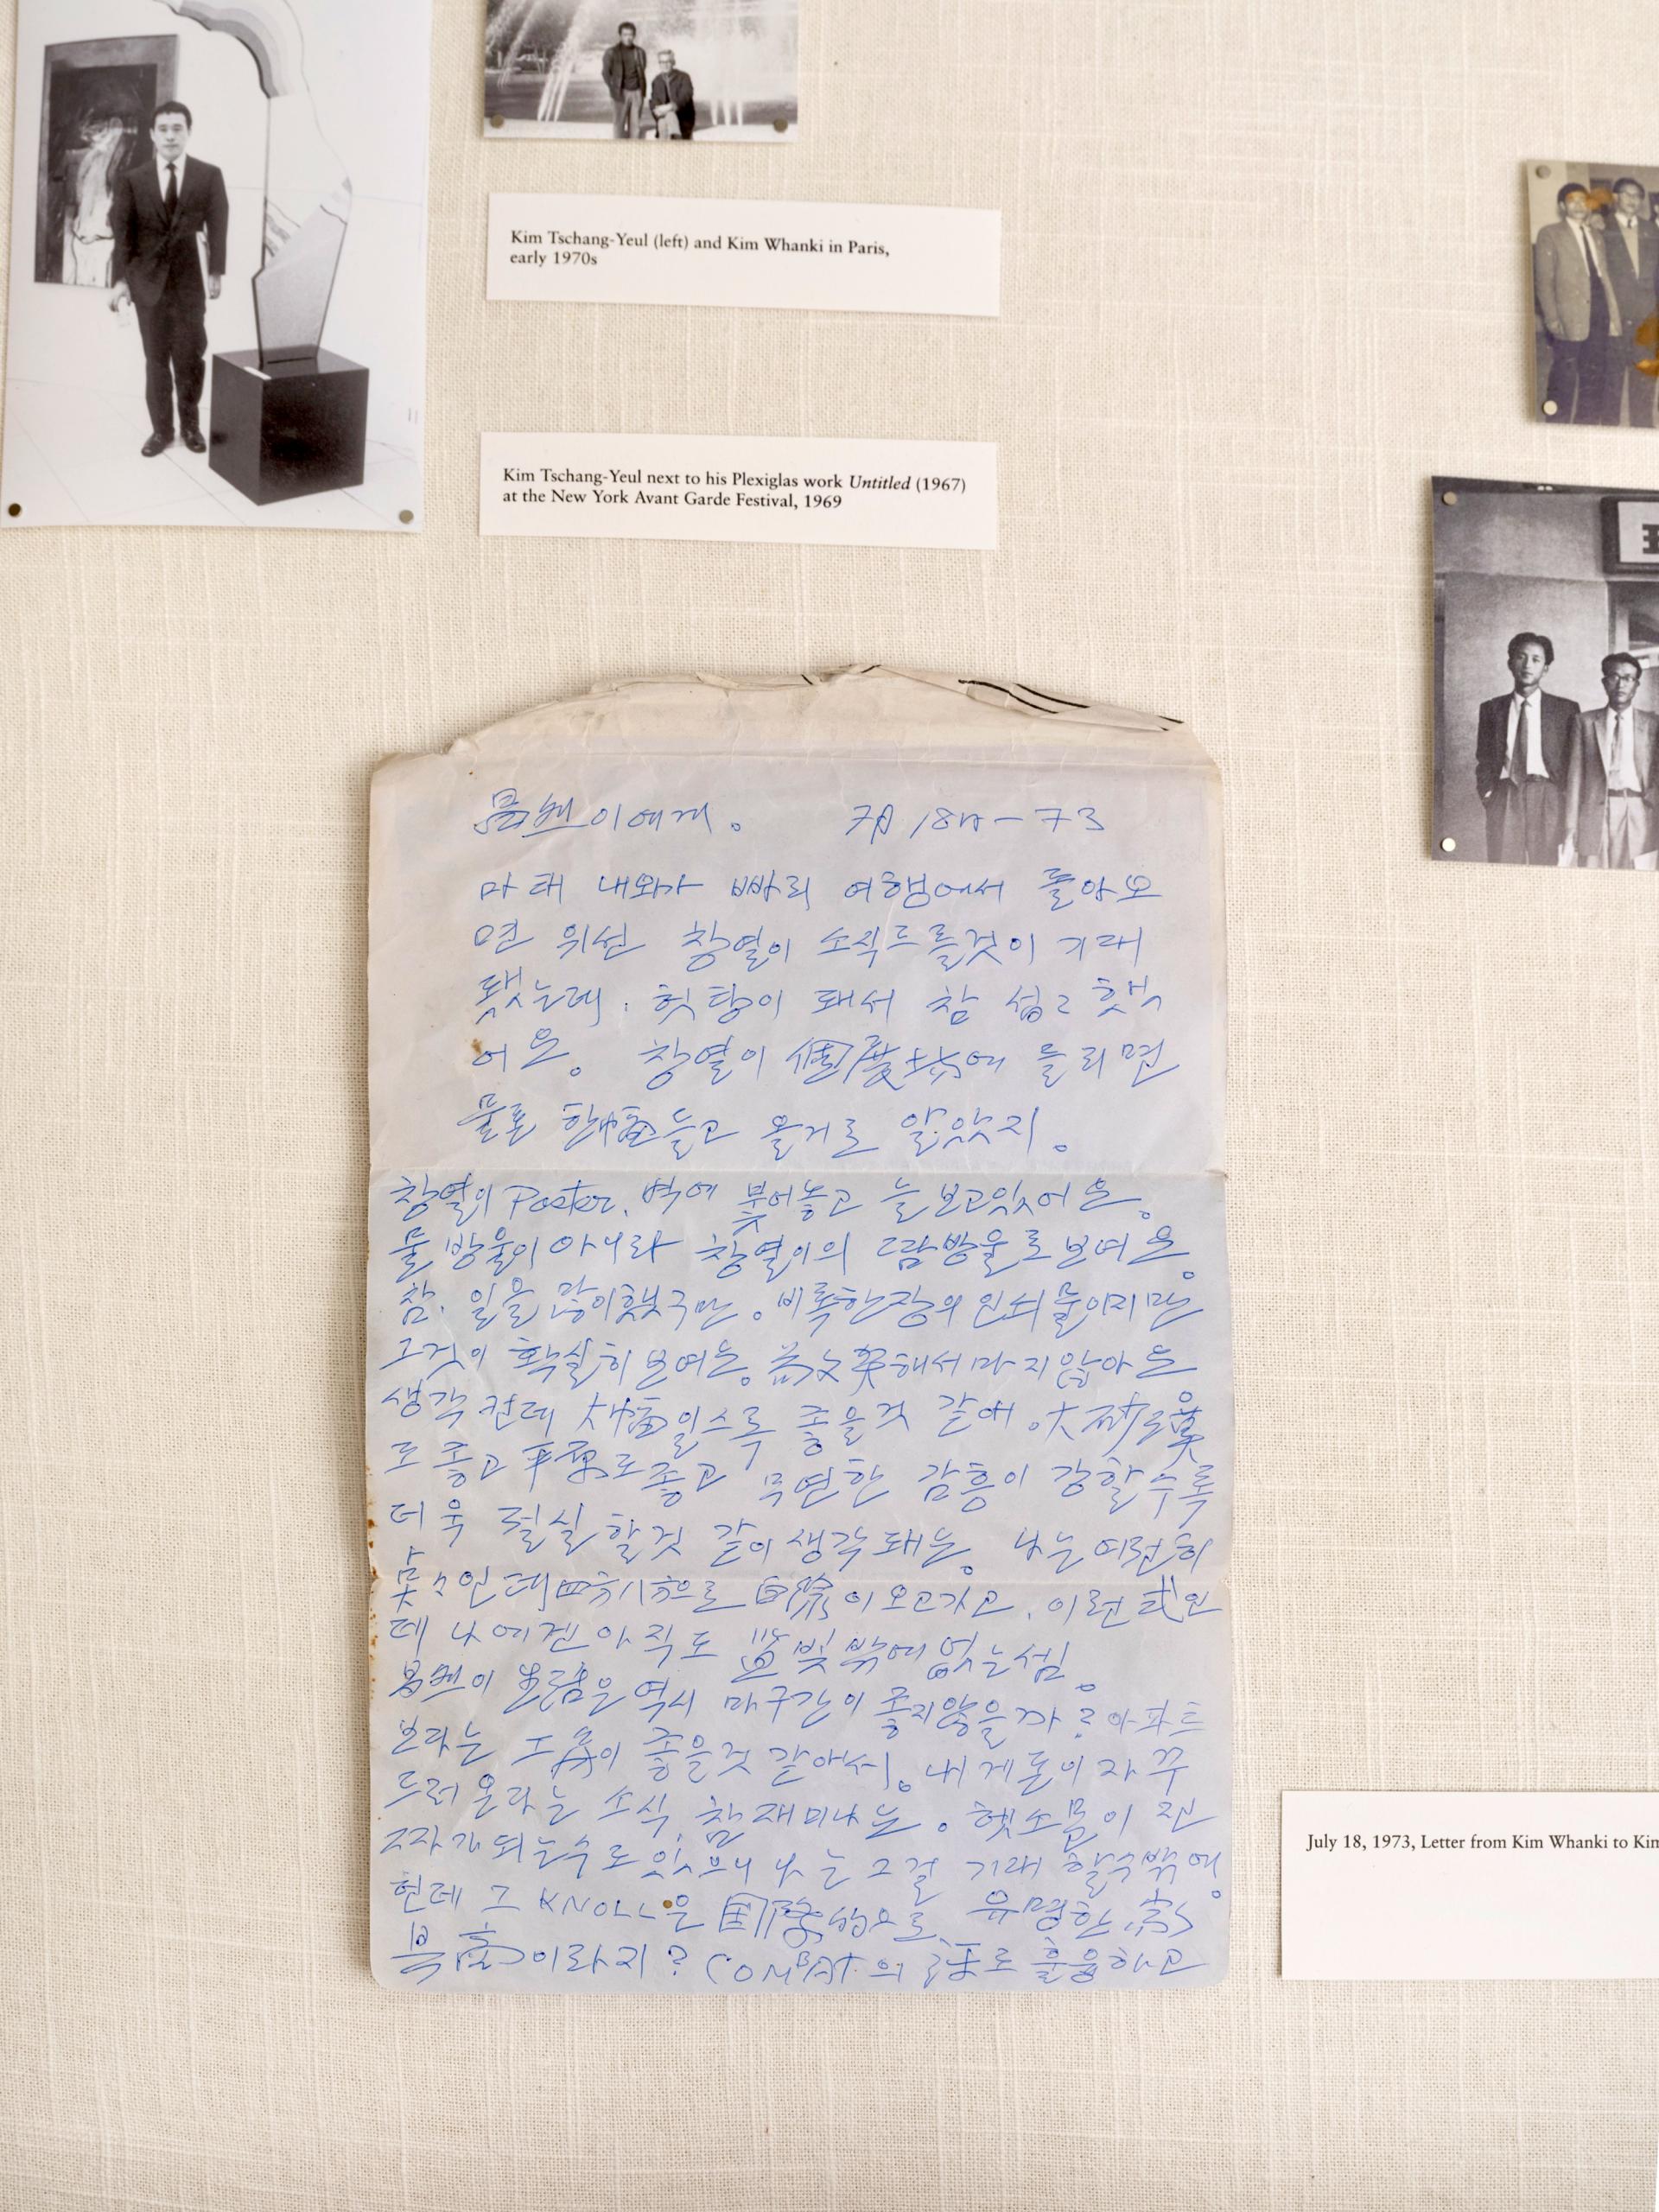 Kim Tschang-Yeul (left) and Kim Whanki in Paris,
early 1970s
Kim Tschang-Yeul next to his Plexiglas work Untitled (1967)
at the New York Avant Garde Festival, 1969
이에게。 7月 18日-73
마태 내외가 빠리 여행에서 돌아오
면 위선 창열이 소식드를것이 기대
됐는데. 헛탕이 돼서 참 섭々했
어온。 창열이 个展 에 들리면
물론 한幅 들고 올거로 알았지。
창열이 Poster. 벽에 붖어놓고 늘 보고있어온。
물방울이 아니라 창열이의 땀방울로 보여온。
참. 일을 많이했구만。비록한장의 인쇄물이지만
그것이 확실히 보여온。 해서마지않아온
생각컨데 大幅일스록 좋을것 같애。大
도 좋고 도 좋고 무연한 감흥이 강할수록
더욱 절실할것 같이 생각돼온。 나는 여전히
点々인데 四方八方으로 이 오고가고. 이런 式인
데 나에겐 아직도 빛밖에 없는셈。
이 역시 마구간이 좋지않을까? 아파트
보라는 工房이 좋을것 같아서。내게 돈이 자꾸
드러온다는 소식. 참 재미나온。헷소문이 진
짜가되는수도 있으니 나는 그걸 기대할수밖에。
헌데 그 KNOLL은 国際的으로 유명한
이라지? COMBAT의 評로 흘융하고
July 18, 1973, Letter from Kim Whanki to Kim